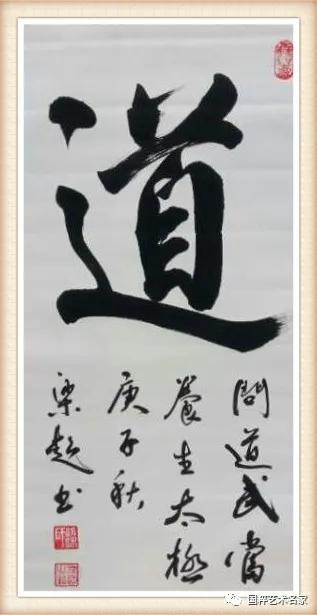 道
問道武當
養生太極
庚子秋
梁超书
国粹艺术名家